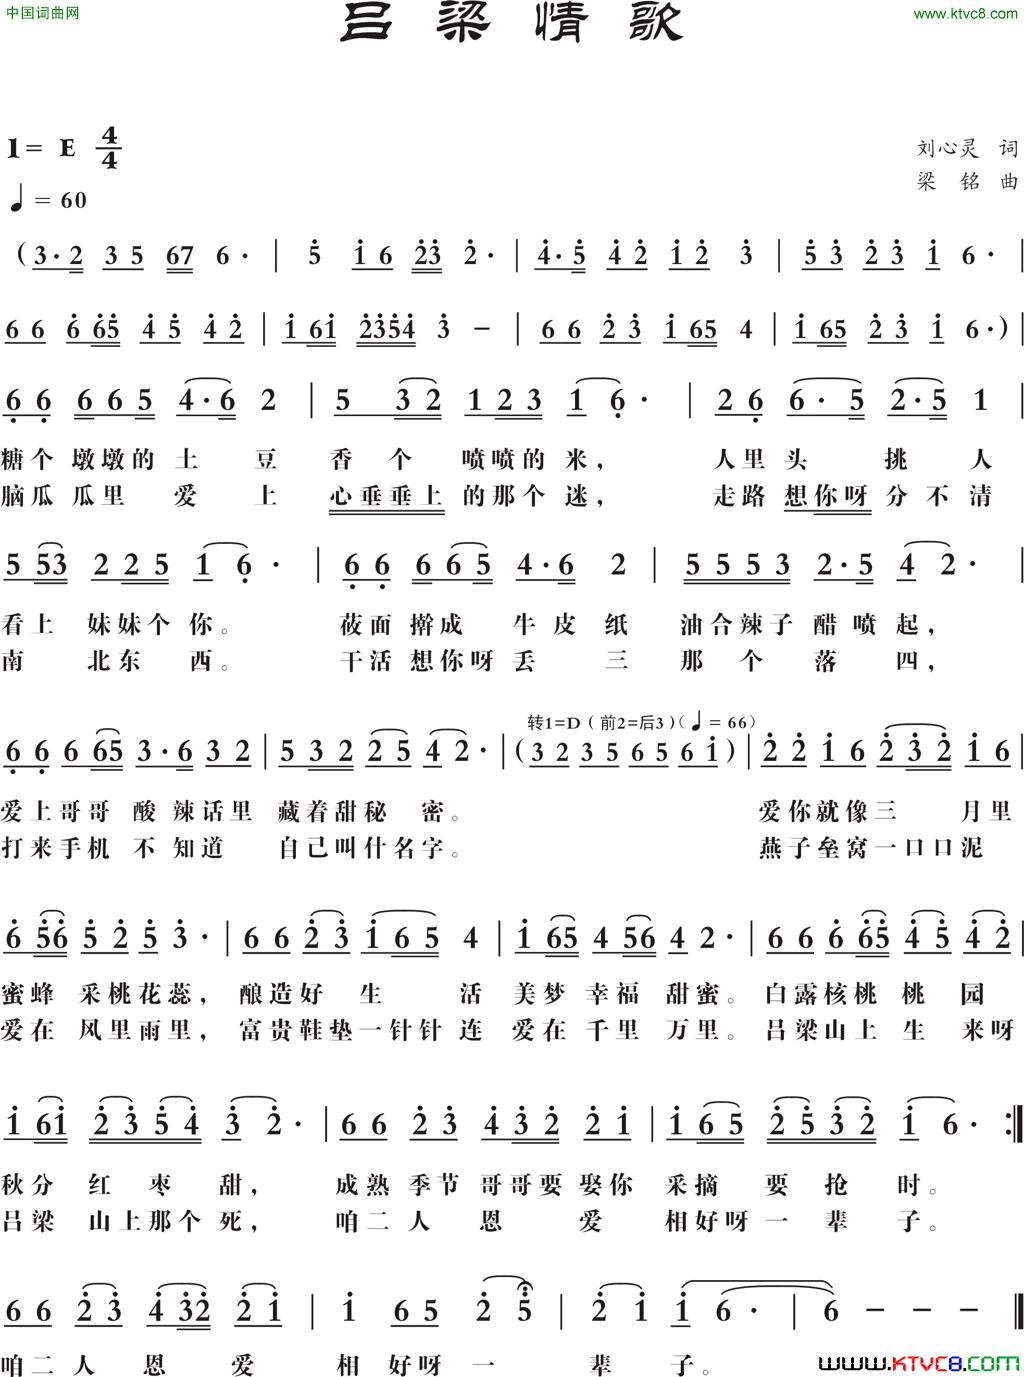 中国词曲网
吕梁情歌
www.ktvc8.com
1= E 4/4
刘心灵 词
♩= 60
梁 铭 曲
(3·2 35 67 6· | 5 16 23 2· | 4·5 42 12 3 | 53 23 1 6· |
66 665 45 42 | 161 2354 3 - | 66 23 165 4 | 165 23 1 6·) |
66 665 4·6 2 | 5 32 123 16· | 26 6·5 2·5 1 |
糖个 墩墩的 土 豆 香 个 喷喷的 米， 人里 头 挑 人
脑瓜 瓜里 爱 上 心垂垂上 的那个 迷， 走路 想你呀 分 不 清
5 53 225 16· | 66 665 4·6 2 | 5553 2·5 42· |
看上 妹妹个 你。 莜面 擀成 牛 皮 纸 油合辣子 醋 喷 起，
南 北东 西。 干活 想你呀 丢 三 那 个 落 四，
转1=D（前2=后3）（♩= 66）
66 665 3·6 32 | 532 25 42· | (32 35 65 61) | 22 16 232 16
爱上哥哥 酸 辣话里 藏着甜秘 密。 爱你就像三 月里
打来手机 不 知道 自己叫什名字。 燕子垒窝一口口泥
6 56 52 5 3· | 66 23 165 4 | 165 456 4 2· | 66 665 45 42
蜜蜂 采桃花蕊， 酿造好 生 活 美梦 幸福 甜蜜。 白露核桃 桃 园
爱在 风里雨里， 富贵鞋垫一针针 连 爱在 千里 万里。 吕梁山上 生 来呀
161 2354 32· | 66 23 432 21 | 165 2532 16· :‖
秋分 红 枣 甜， 成熟 季节 哥哥要 娶你 采摘 要 抢 时。
吕梁 山上那个 死， 咱二 人 恩 爱 相好呀 一 辈 子。
66 23 432 21 | 1 65 25 | 21 16· | 6 - - - ‖
咱二 人 恩 爱 相 好呀 一 辈 子。
WWW.KTVC8.COM